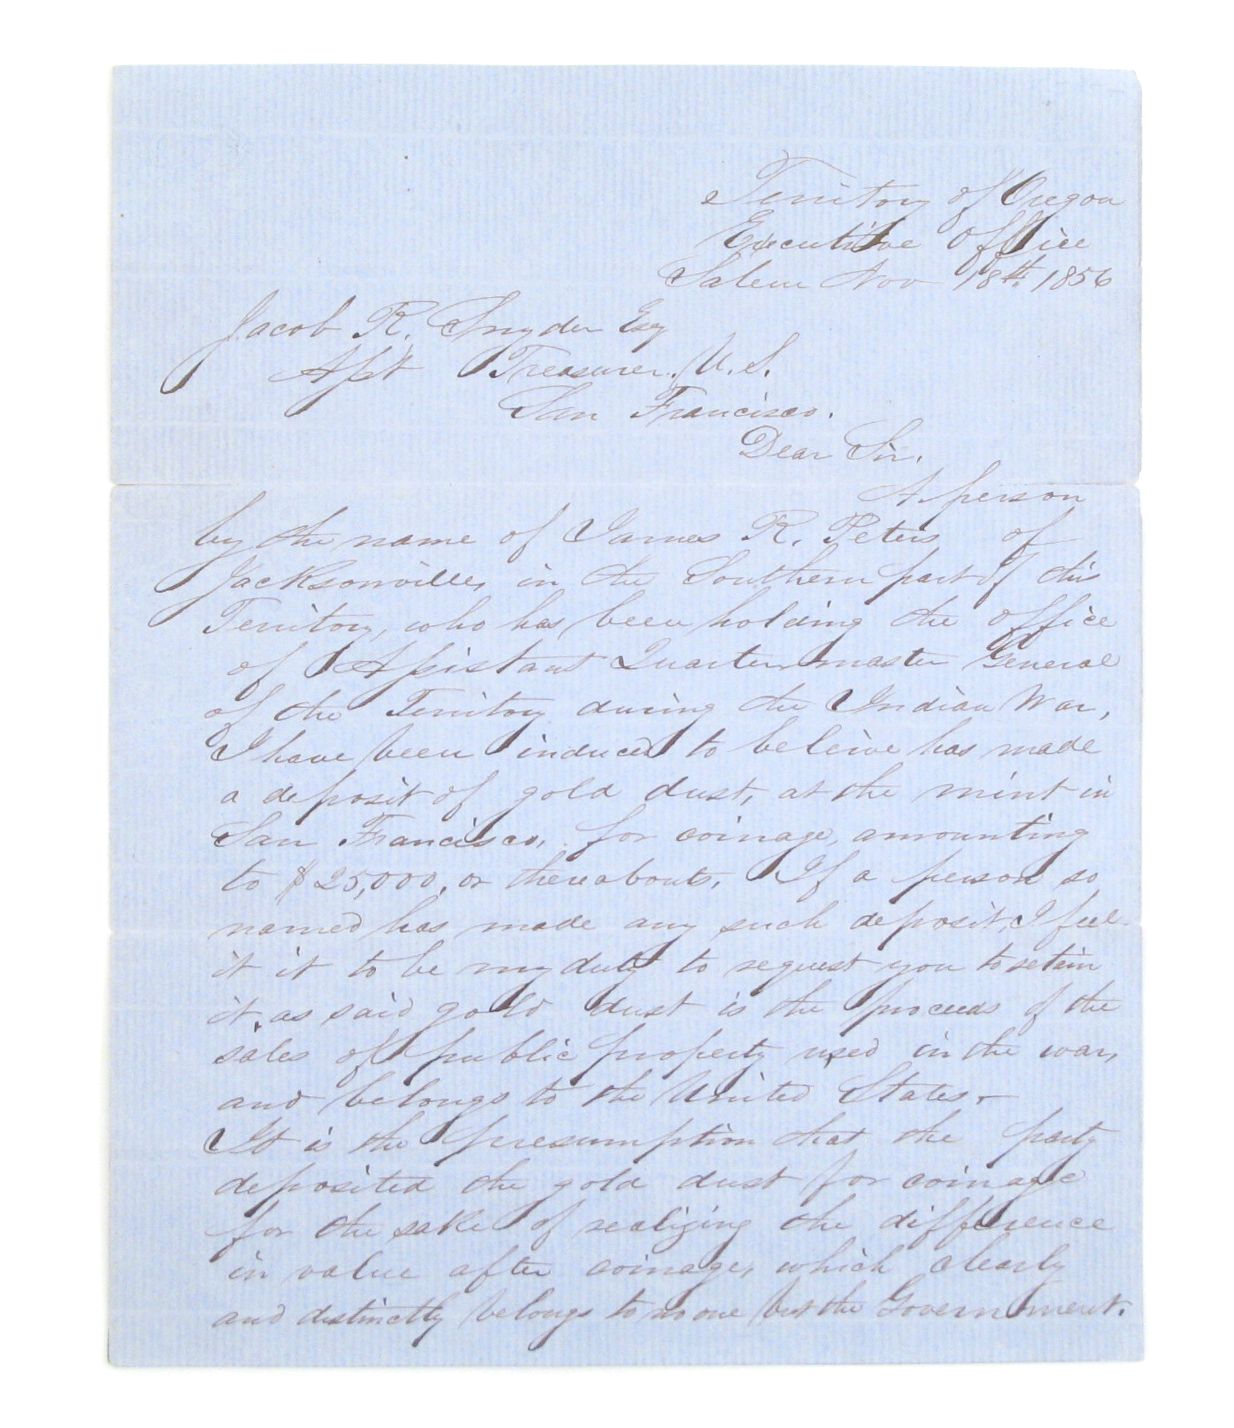 Territory of Oregon
Executive Office
Salem Nov 18th. 1856
Jacob R. Snyder Esq
Asst Treasurer. U.S.
San Francisco.
Dear Sir.
A person
by the name of James R. Peters of
Jacksonville, in the Southern part of this
Territory, who has been holding the office
of Assistant Quartermaster General
of the Territory during the Indian War,
I have been induced to beleive has made
a deposit of gold dust, at the mint in
San Francisco, for coinage, amounting
to $25,000, or thereabouts. If a person so
named has made any such deposit, I feel
it it to be my duty to request you to retain
it, as said gold dust is the proceeds of the
sales of public property used in the war,
and belongs to the United States.
It is the presumption that the party
deposited the gold dust for coinage
for the sake of realizing the difference
in value after coinage, which clearly
and distinctly belongs to no one but the Government.